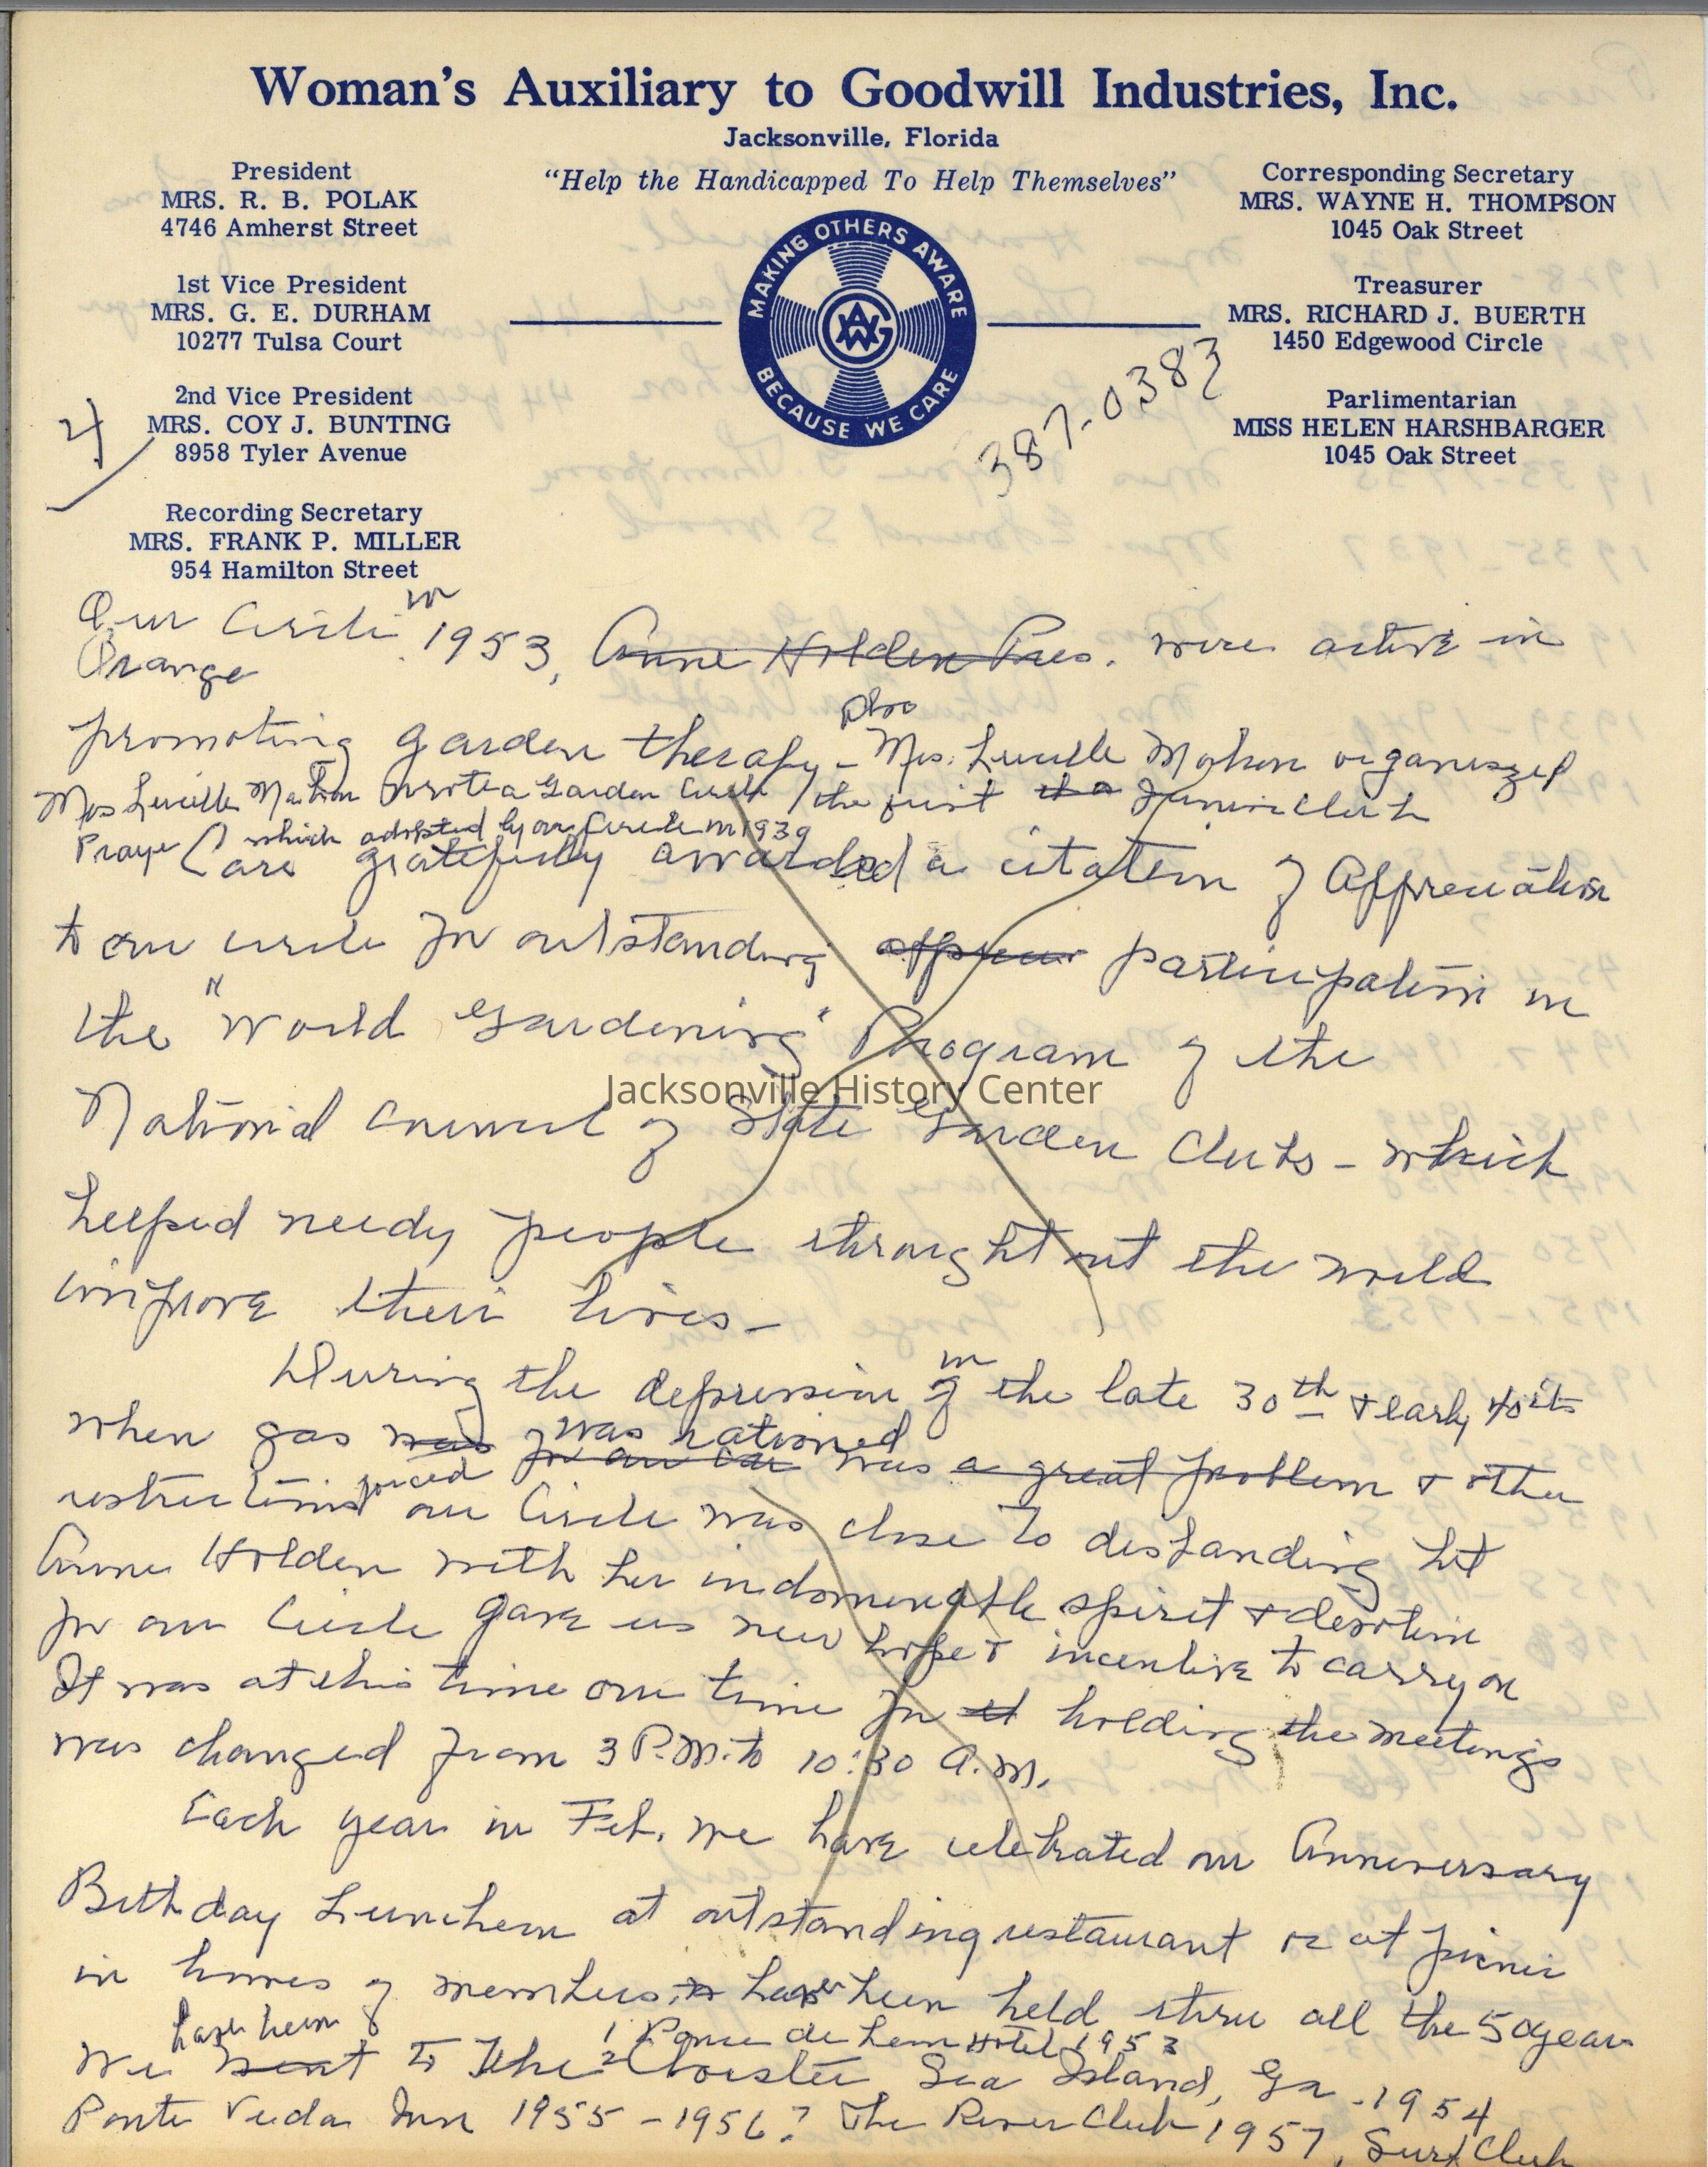 Woman's Auxiliary to Goodwill Industries, Inc.
Jacksonville, Florida
"Help the Handicapped To Help Themselves"
President
MRS. R. B. POLAK
4746 Amherst Street
1st Vice President
MRS. G. E. DURHAM
10277 Tulsa Court
2nd Vice President
MRS. COY J. BUNTING
8958 Tyler Avenue
Recording Secretary
MRS. FRANK P. MILLER
954 Hamilton Street
MAKING OTHERS AWARE
BECAUSE WE CARE
Corresponding Secretary
MRS. WAYNE H. THOMPSON
1045 Oak Street
Treasurer
MRS. RICHARD J. BUERTH
1450 Edgewood Circle
Parlimentarian
MISS HELEN HARSHBARGER
1045 Oak Street
387-0383
4
Our Circle in 1953, Anne Holden Pres. were active in
Orange
promoting garden therapy - also Mrs. Lucille Mahon organiszed
Mrs Lucille Mahon wrote a Garden Circle / the first Junior Club
Prayer which adopted by our Circle in 1939
are gratefully awarded a citation of Appreciation
to our circle for outstanding participation in
the "World Gardening" Program of the
National Council of State Garden Clubs - which
Jacksonville History Center
helped needy people throught out the world
improve their lives -
During the depression in of the late 30th & early 40its
when gas was for our car was rationed was a great problem & other
restrictions forced our Circle was close to disbanding but
Anne Holden with her indomenable spirit & devotion
for our Circle gave us new hope & incentive to carry on
It was at this time our time for holding the meetings
was changed from 3 P.M. to 10:30 A.M.
Each year in Feb. we have celebrated our Anniversary
Bithday Luncheon at outstanding restaurant or at picnic
in homes of members, have been held thru all the 50 years
have been 1 Ponce de Leon Hotel 1953
We went to The 2 Cloister Sea Island, Ga - 1954
Ponte Vedra Inn 1955 - 1956? The River Club 1957, Surf Club